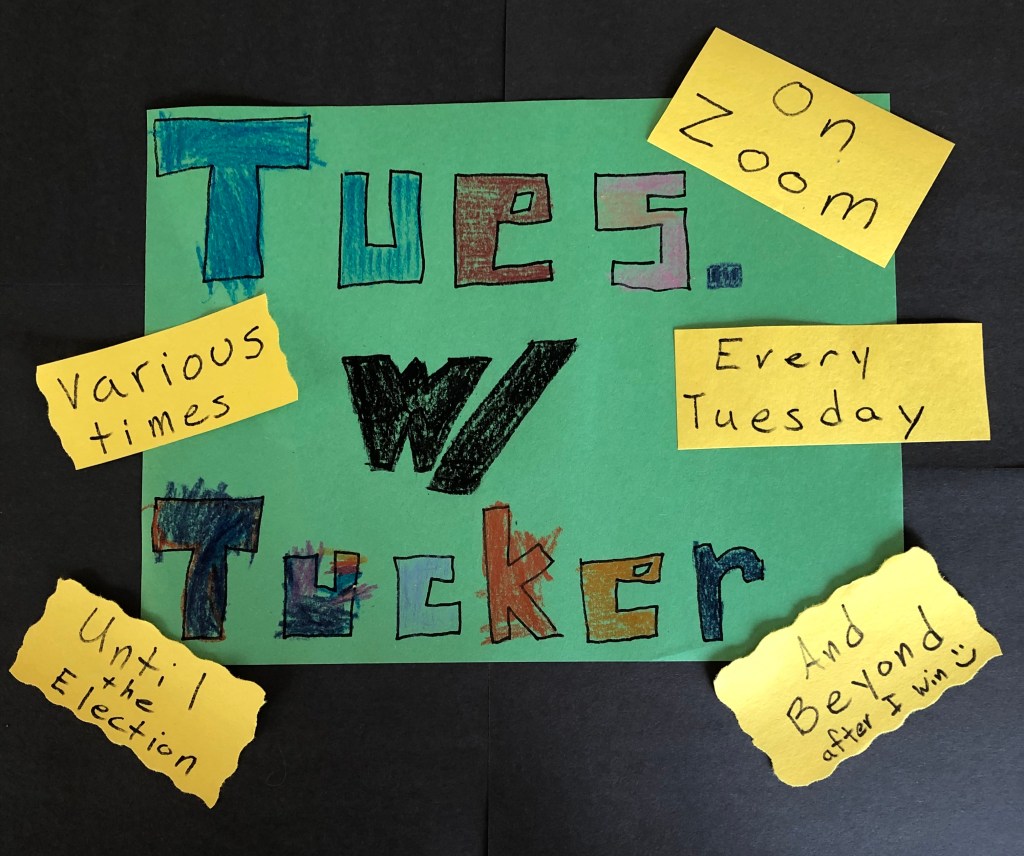 Tues.
w/
Tucker
On
Zoom
Various
times
Every
Tuesday
Until
the
Election
And
Beyond
after I win